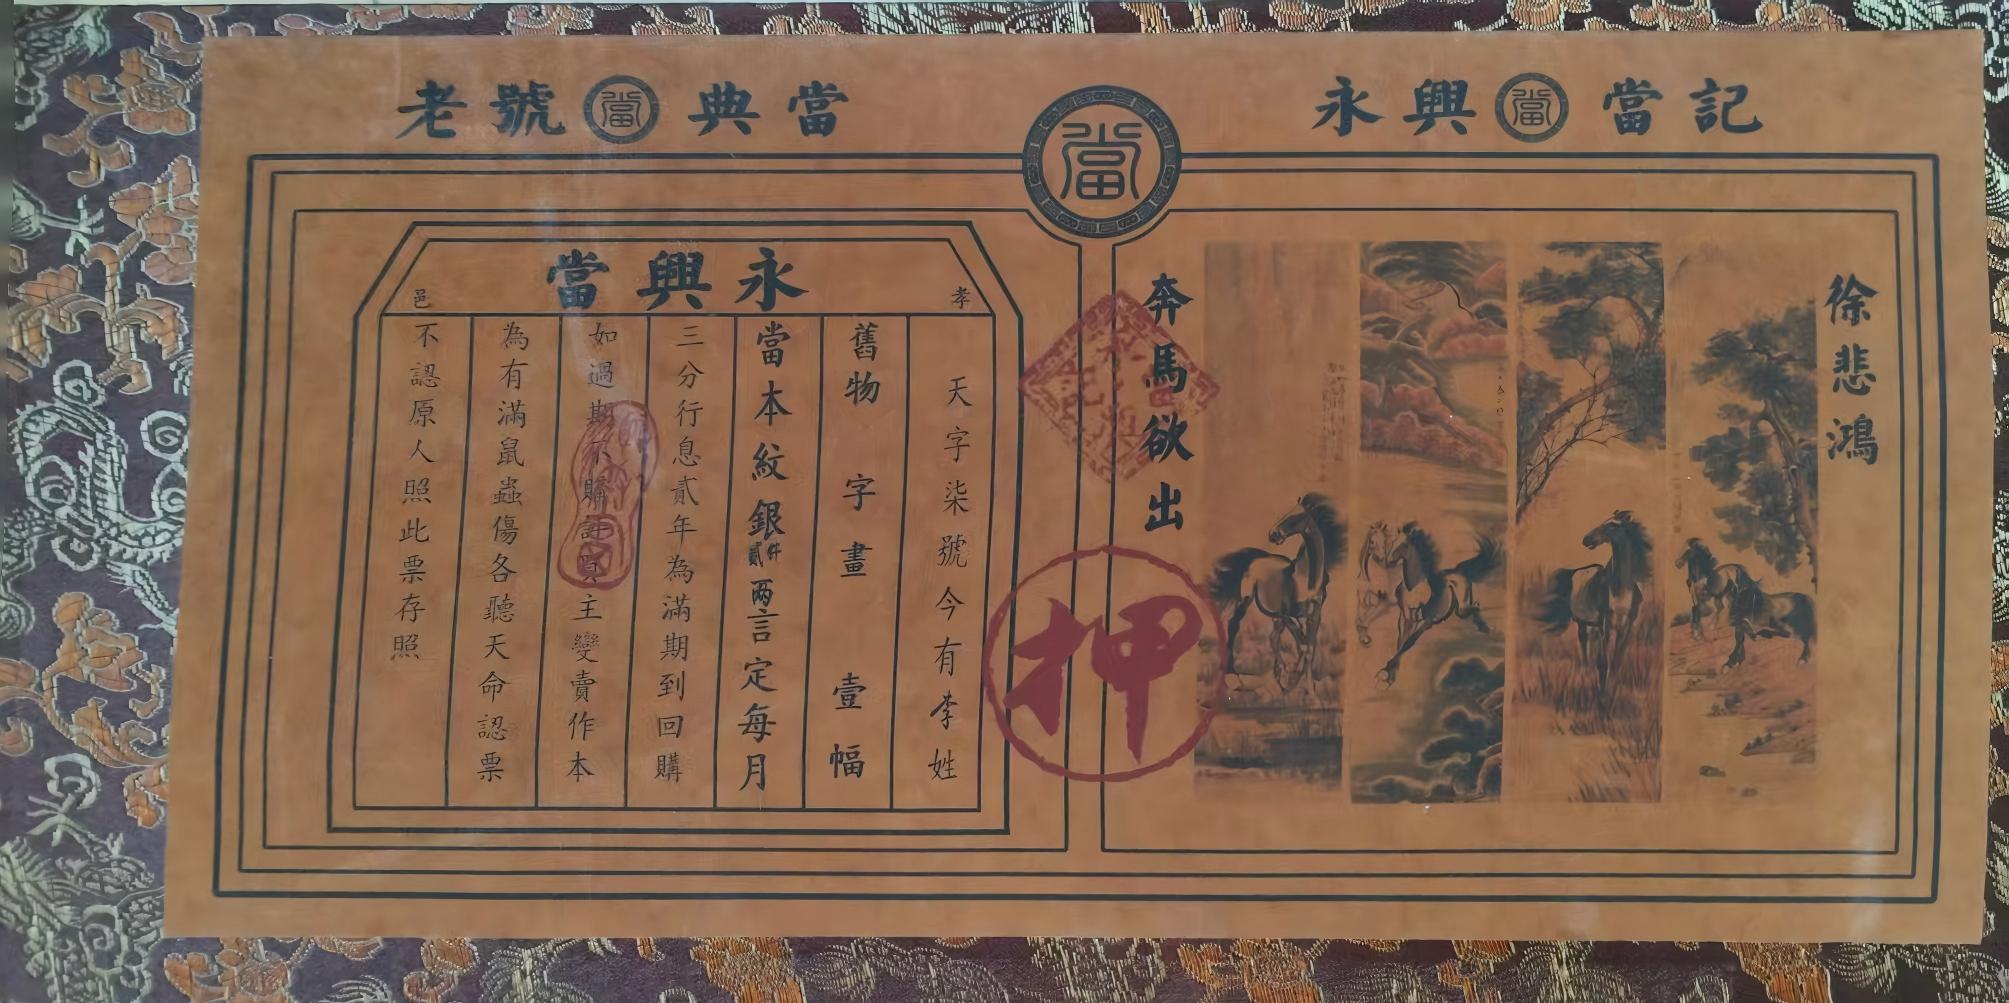 老號當典當
當
永興當當記
永興當
孝
邑
天字柒號今有李姓
舊物字畫壹幅
當本紋銀貳仟兩言定每月
三分行息貳年為滿期到回購
如過期不購註買主變賣作本
為有滿鼠蟲傷各聽天命認票
不認原人照此票存照
徐悲鴻
奔馬欲出
押